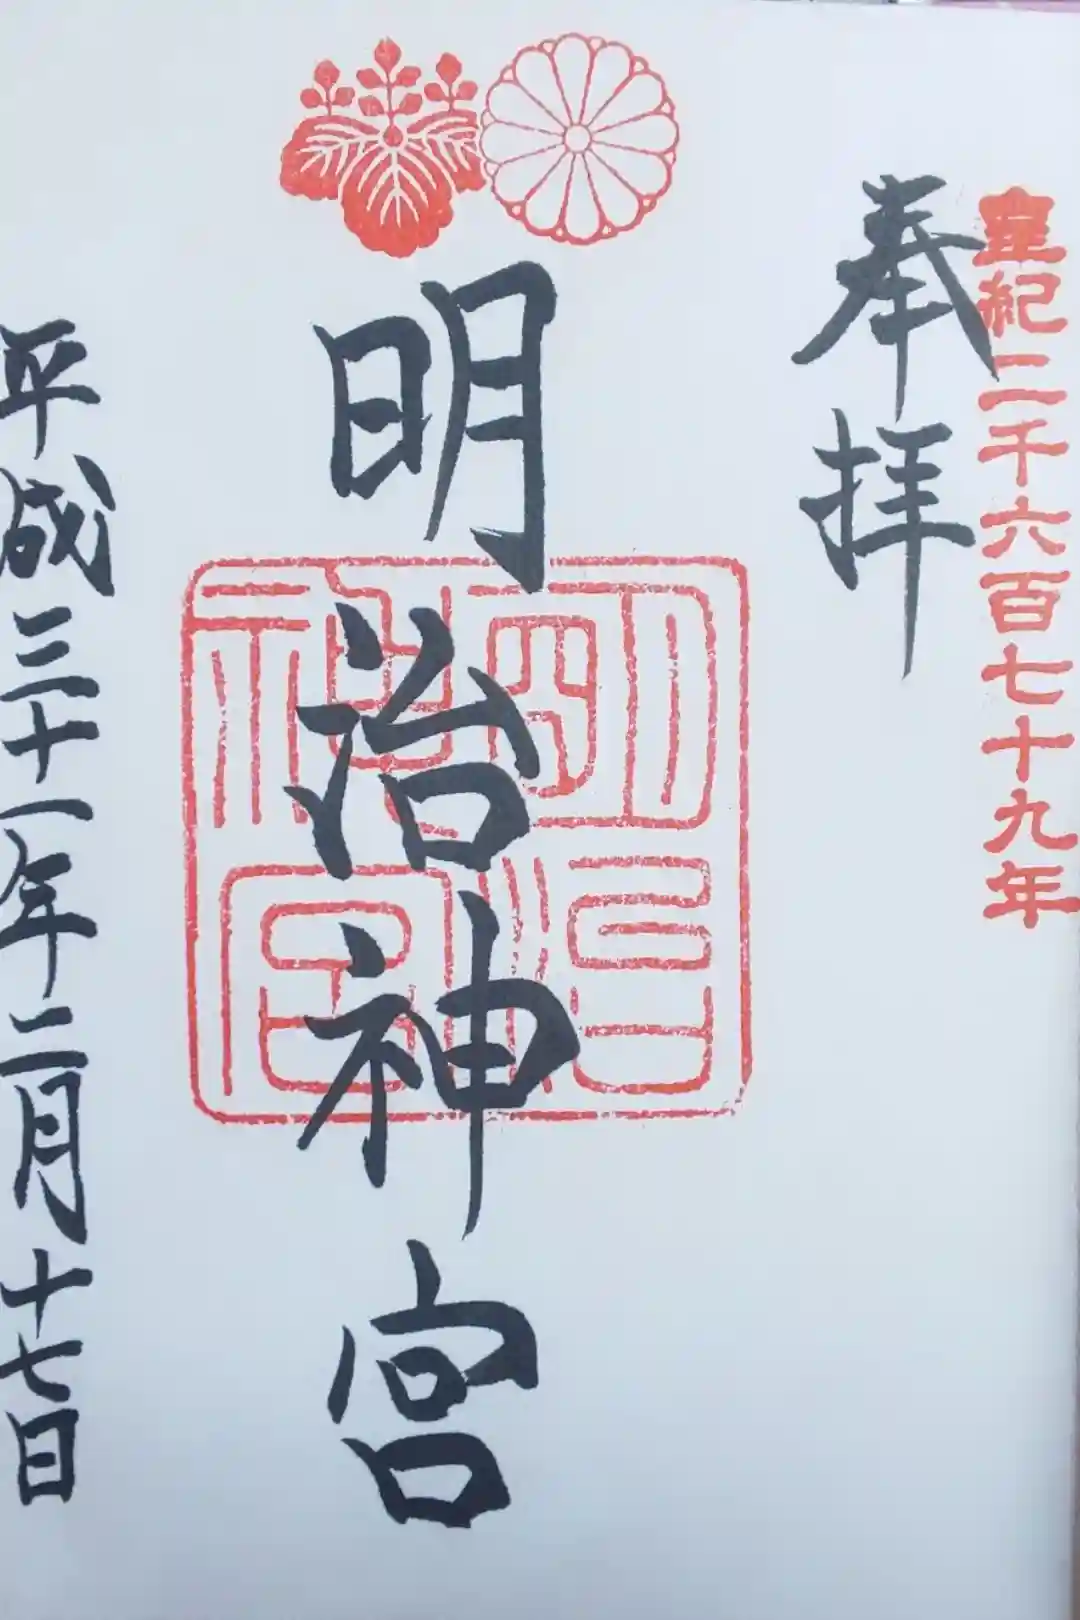 皇紀二千六百七十九年
奉拝
明治神宮
明治神宮
平成三十一年二月十七日